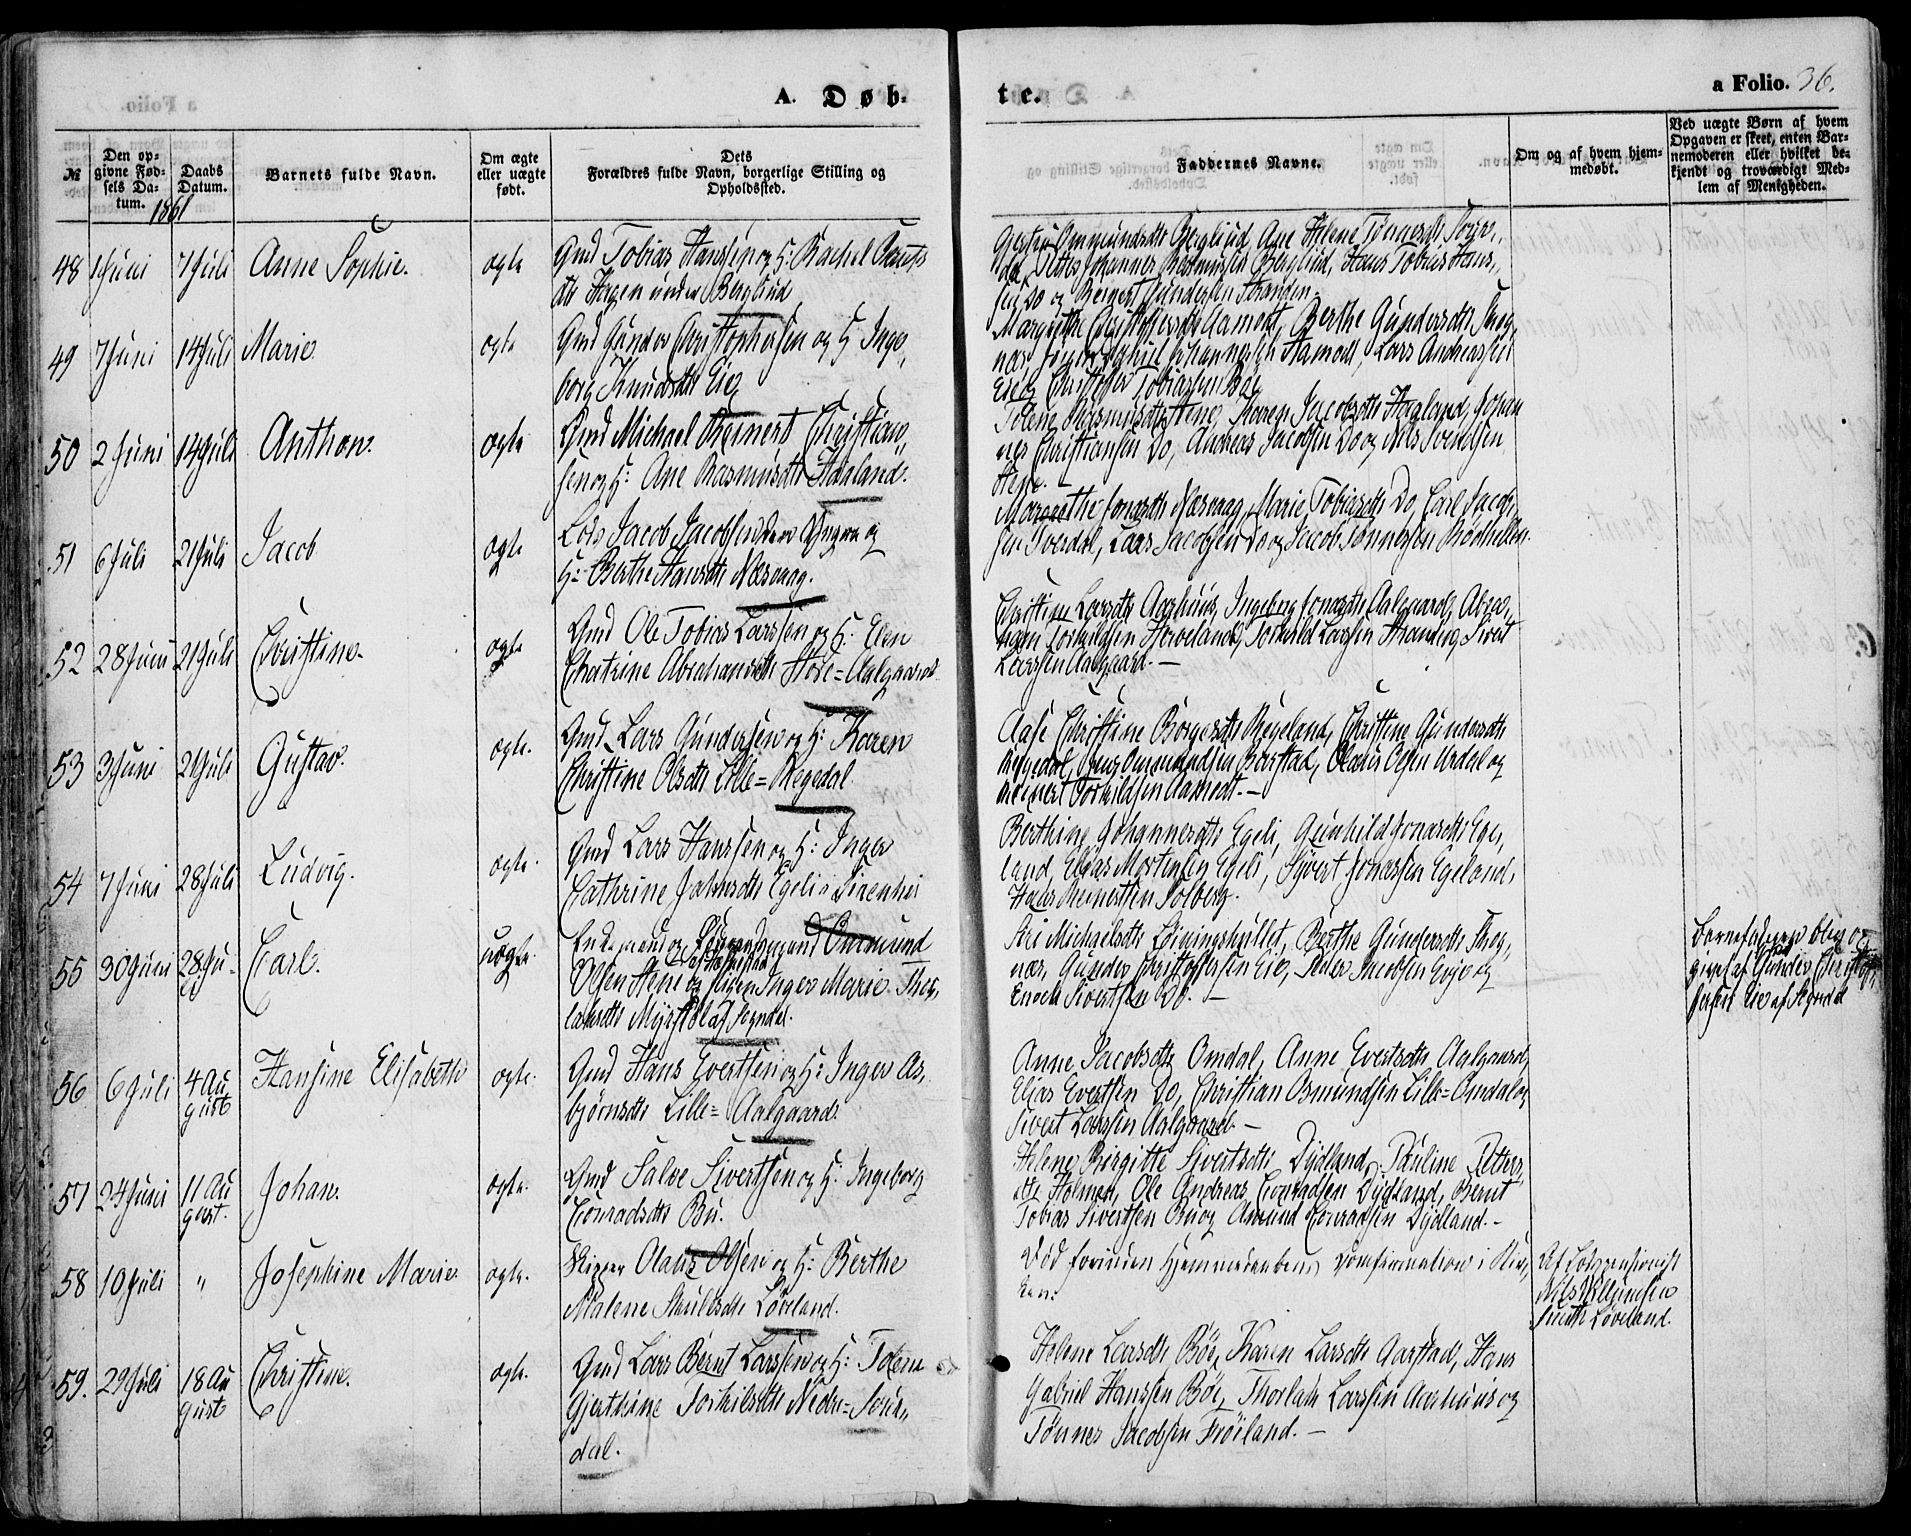 A. Døb-
te.
a Folio. 36.
№
Den op-
givne Fød-
sels Da-
tum.
1861
Daabs
Datum.
Barnets fulde Navn.
Om ægte
eller uægte
født.
Dets
Forældres fulde Navn, borgerlige Stilling og
Opholdssted.
Faddernes Navne.
Om og af hvem hjem-
medøbt.
Ved uægte Børn af hvem
Opgaven er skeet, enten Bar-
nemoderen eller hvilket be-
kjendt og troværdigt Med-
lem af Menigheden.
48 1 Juni 7 Juli Anne Sophie. ægte Gmd Tobias Hanssen og H: Rachel
Hagen under Berglund
Ommundsdtr Berglund, Ane Helene Tønnesdtr
Johannes Rasmussen Berglund, Hans Tobias Hans,
sen Do og Reinert Gundersen Stranden.
49 7 Juni 14 Juli Marie. ægte Gmd Gunder Christophersen og H: Inge,
borg Knudsdtr Eie
Margrethe Aamodt, Berthe Gundersdtr Skog,
nær, Johannessen Aamodt, Lars Andreassen
Eie og Christoffer Tobiassen Bøe
50 2 Juni 14 Juli Anthon. ægte Gmd Michael Reinert Christian,
sen og H: Ane Rasmusdtr Haaland.
Tolene Rasmusdtr Hene, Karen Jacobsdtr Haaland, Johan
nes Christiansen Do, Andreas Jacobsen Do og Nils Svendsen
Hene.
51 6 Juli 21 Juli Jacob ægte Lods Jacob Jacobsen den Yngre og
H: Berthe Hansdtr Næsvaag.
Margrethe Jonasdtr Næsvaag, Marie Tobiasdtr Do, Carl Jacob,
sen Tverdal, Lars Jacobsen Do og Jacob Tønnesen Rødhellen.
52 28 Juni 21 Juli Christine. ægte Gmd Ole Tobias Larssen og H: Elen
Chatrine Abrahamsdtr Store=Aalgaard.
Christine Larsdtr Aarhuus, Ingeborg Jonasdtr Aalgaard, Abra,
ham Torkildsen Hovelands, Torkild Larssen Strand og Sivert
Larssen Aalgaard.—
53 3 Juni 21 Juli Gustav. ægte. Gmd Lars Gundersen og H: Karen
Christine Olsdtr Lille=Regedal
Aase Christine Børgesdtr Regeland, Christine Gundersdtr
Regedal, Jens Ommundsen Barstad, Olaus Olsen Urdal og
Reinert Torkildsen Aamodt.—
54 7 Juni 28 Juli Ludvig. ægte. Gmd Lars Hanssen og H: Inger
Cathrine Johnsdtr Egeli i Sirenhei
Berthine Johannesdtr Egeli, Gunhild Jonasdtr Ege,
land, Elias Mortensen Egeli, Syvert Jonassen Egeland,
Hans Reinertsen Solberg.
55 30 Juni 28 Ju- Carl. uægte. Enkemand og Ommund
Olsen Hene og Pigen Inger Marie Thor,
laksdtr Myrstøl af Sogndal.
Siri Michaelsdtr Berthe Gundersdtr Skog,
nær, Gunder Christoffersen Eie, Peder Jacobsen Eye og
Enoch Sivertsen Do. —
Barnefaderen blev op-
givet af Gunder Christof,
fersen Eie af Sogndal
56 6 Juli 4 Au
gust Hansine Elisabeth ægte. Gmd Hans Evertsen og H: Inger As,
bjørnsdtr Lille=Aalgaard.
Anne Jacobsdtr Omdal, Anne Evertsdtr Aalgaard,
Elias Evertsen Do, Christian Osmundsen Lille=Omdal og
Sivert Larssen Aalgaard.—
57 24 Juni 11 Au
gust. Johan. ægte. Gmd Salve Sivertsen og H: Ingeborg
Conradsdtr Bu.
Helene Birgitte Sivertsdtr Dydland, Pauline Petters,
dtr Holmen, Ole Andreas Conradsen Dydland, Bernt
Tobias Sivertsen Bu og Amund Conradsen Dydland.—
58 10 Juli " Josephine Marie. ægte. Skipper Olaus Olsen og H: Berthe
Malene Paulsdtr Løveland.
Død forinden Hjemmedaabens Confirmation i Kir,
ken.
Af Lodspensionist
Nils
Løveland.
59. 29 Juli 18 Au
gust Christine. ægte. Gmd Lars Bernt Larssen og H: Tolene
Gjerthine Torkilsdtr Nedre=Soke,
dal.
Helene Larsdtr Bøe, Karen Larsdtr Aarstad, Hans
Gabriel Hanssen Bøe, Thorlak Larssen Aarhuus og
Tønnes Jacobsen Frøiland.—